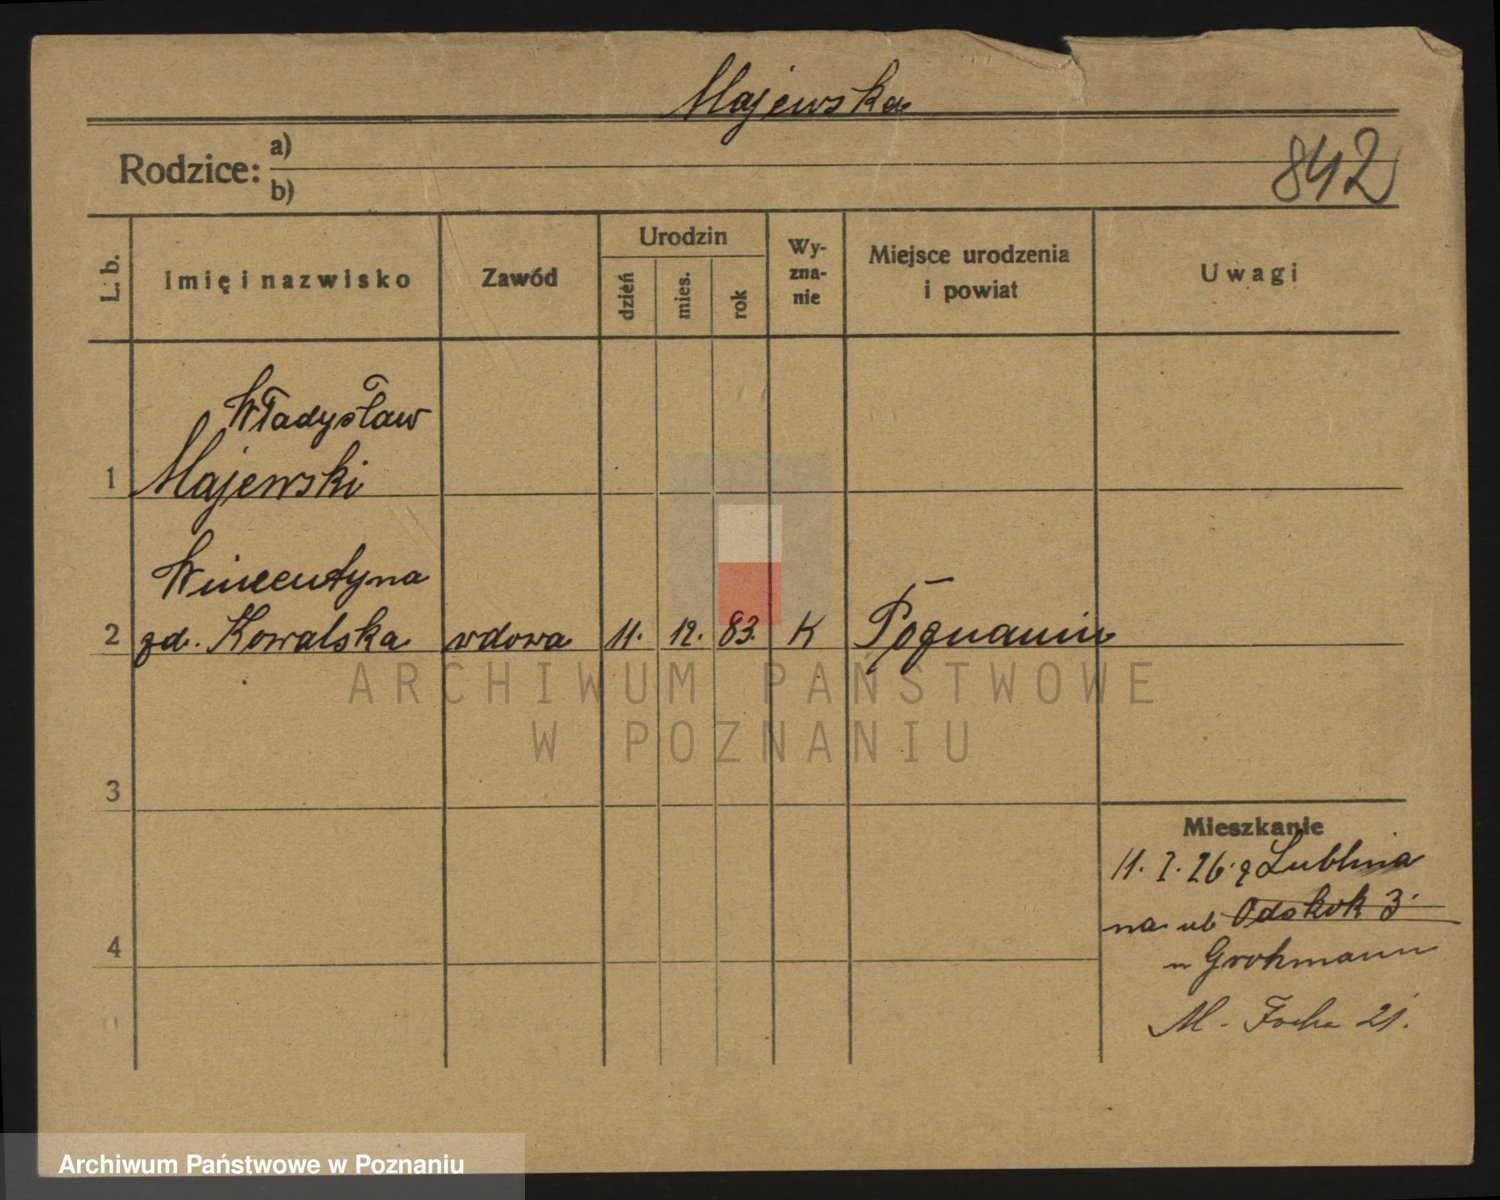 Majewska
Rodzice: a)
b)
842
L. b.
Imię i nazwisko
Zawód
Urodzin
dzień
mies.
rok
Wy-
zna-
nie
Miejsce urodzenia
i powiat
Uwagi
Władysław
1 Majewski
Wincentyna
2 zd. Kowalska wdowa 11. 12. 83. K Poznaniu
ARCHIWUM PAŃSTWOWE
W POZNANIU
3
Mieszkanie
11. 2. 26. z Lublina
na ul Odskok 3
4
u Grohmann
M. Focha 21.
Archiwum Państwowe w Poznaniu